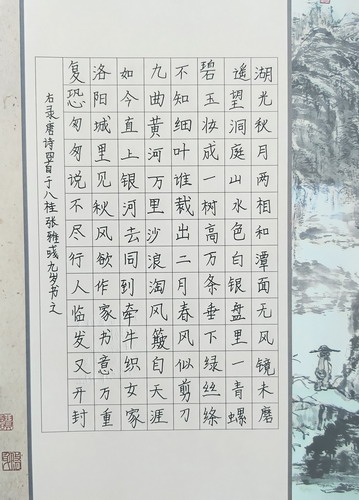 湖光秋月两相和潭面无风镜未磨
遥望洞庭山水色白银盘里一青螺
碧玉妆成一树高万条垂下绿丝绦
不知细叶谁裁出二月春风似剪刀
九曲黄河万里沙浪淘风簸自天涯
如今直上银河去同到牵牛织女家
洛阳城里见秋风欲作家书意万重
复恐匆匆说不尽行人临发又开封
右录唐诗四首于八桂张雅彧九岁书之